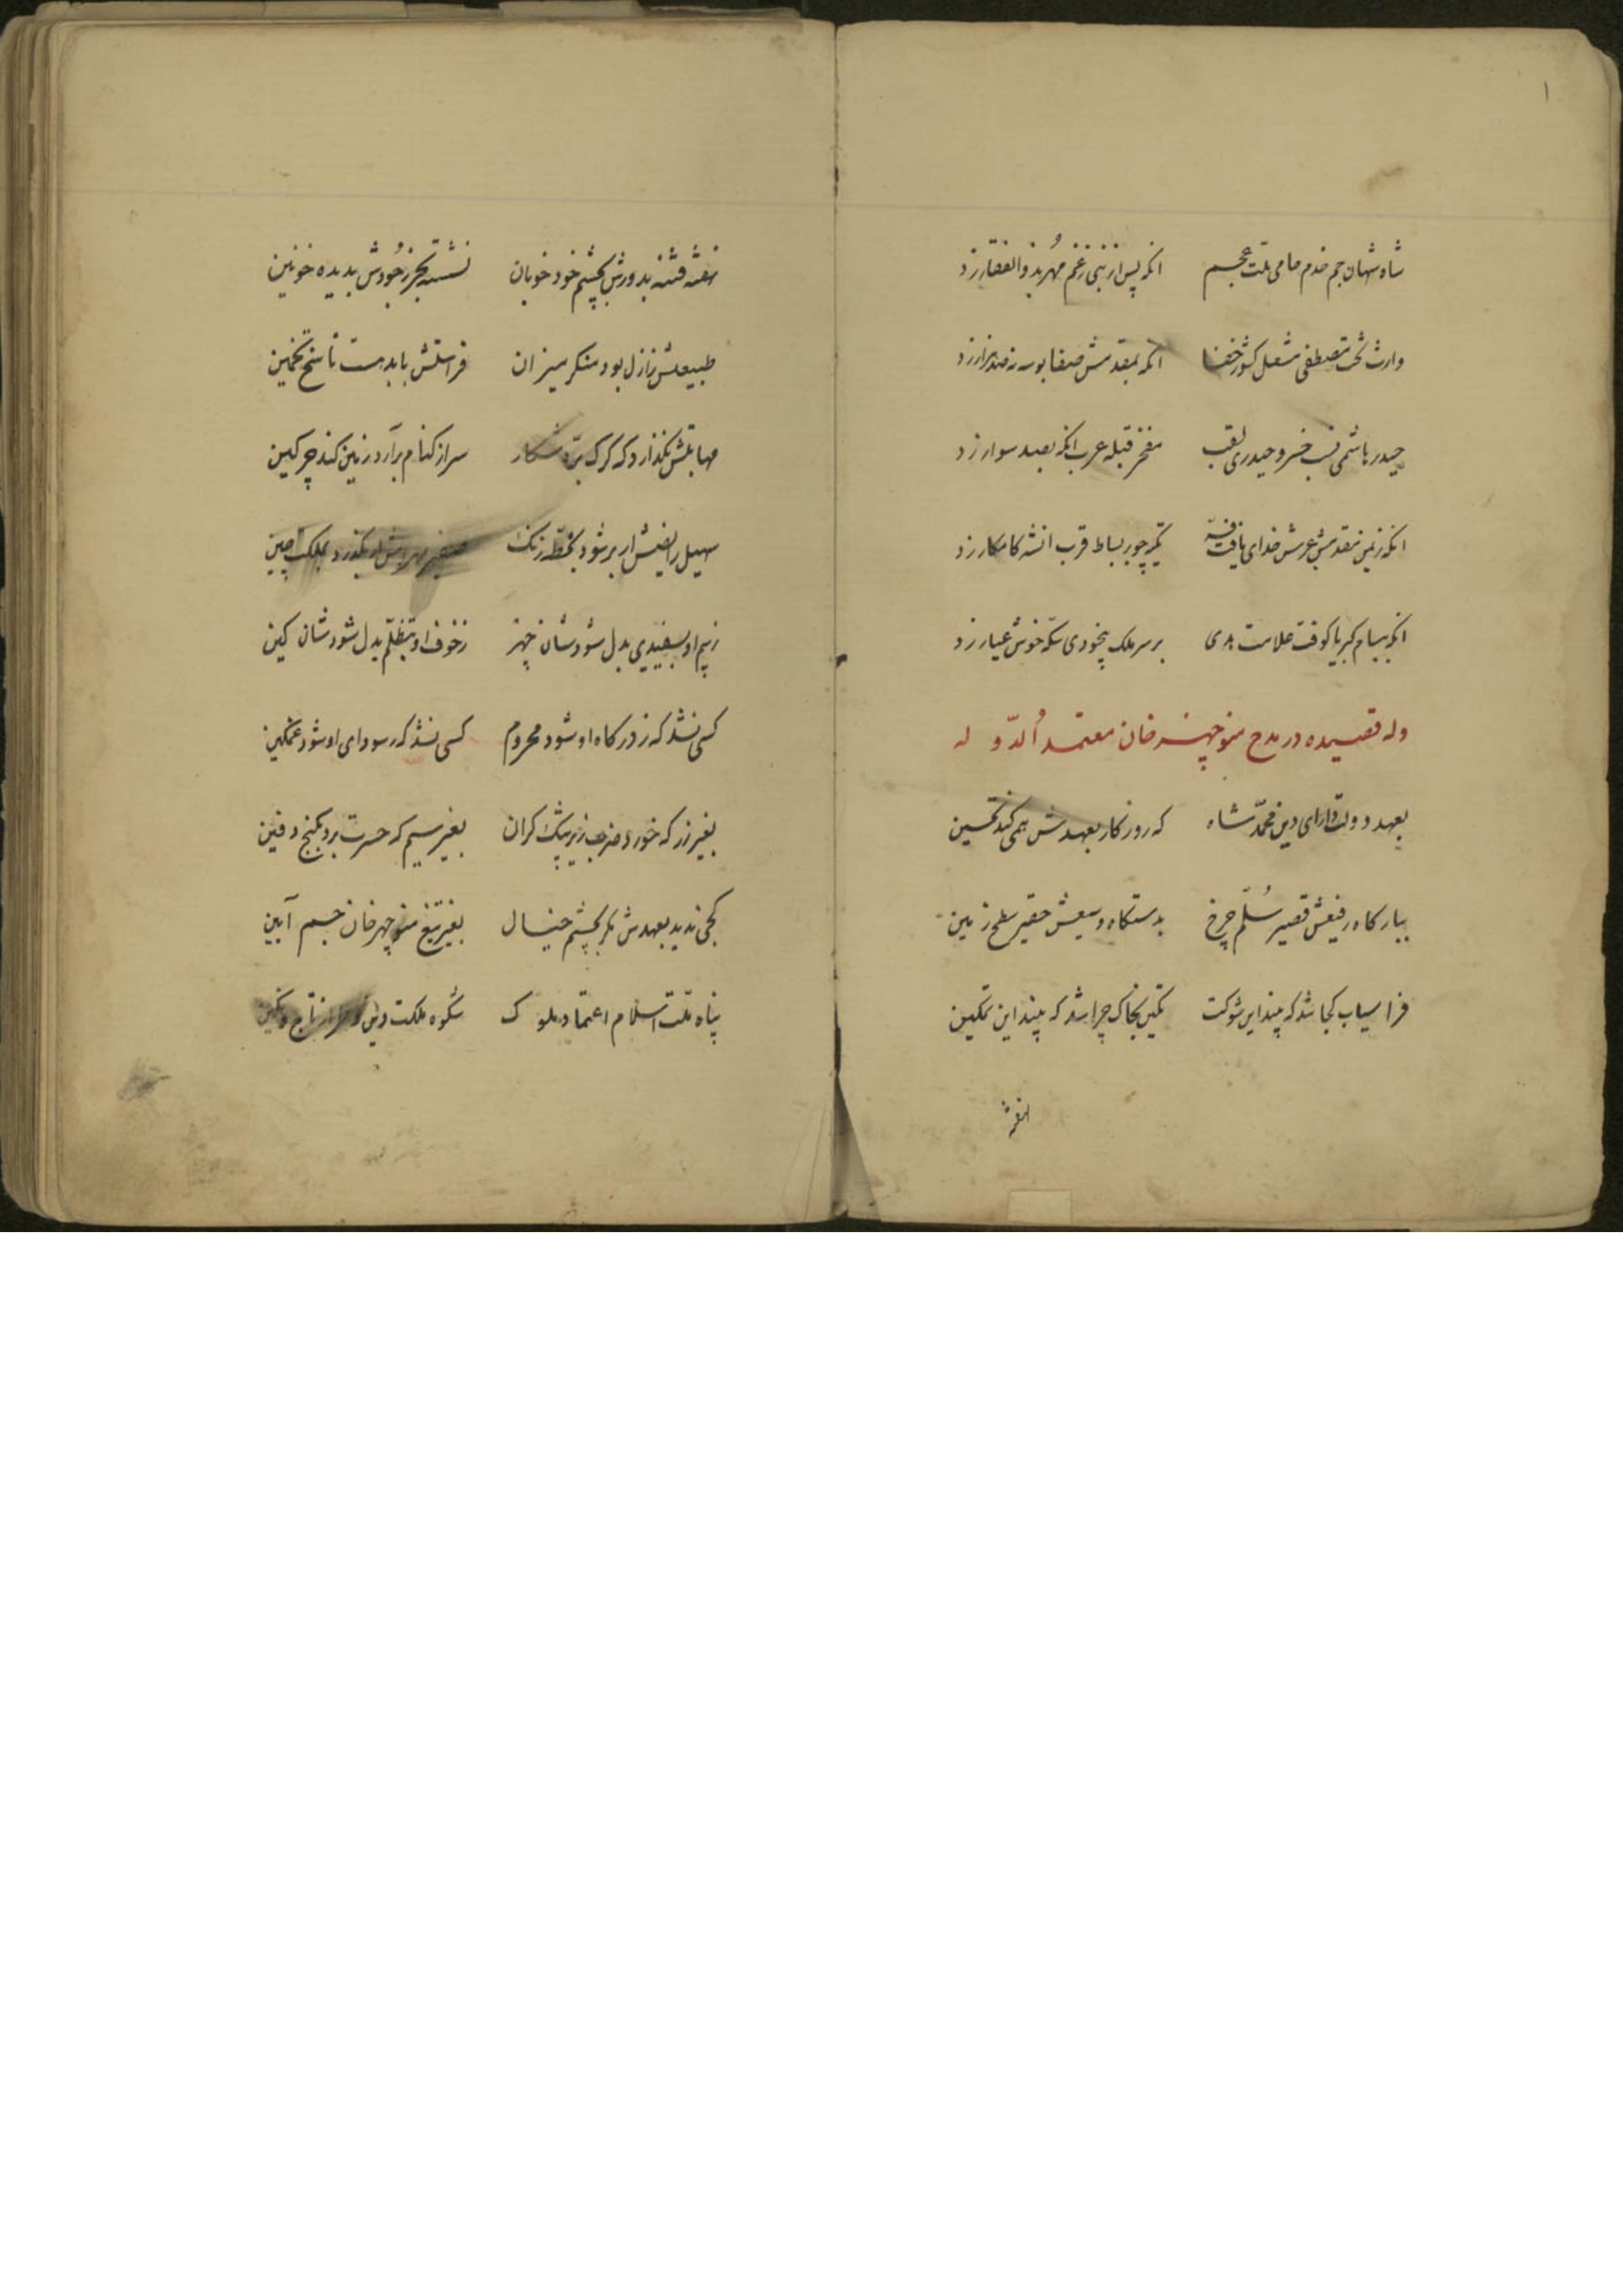 ۱
شاه شهان جم خدم حامی ملت عجم انکه پس از نبی زغم مهر بذوالفقار زد
وارث تخت مصطفی مشعل کشور خفا انکه بمقدمش صفا بوسه نه صد هزار زد
حیدر هاشمی نسب خسرو حیدری لقب مفخر قبله عرب انکه بصید سوار زد
انکه زیمن مقدمش عرش خدای یافت تکیه چو بر بساط قرب انشه کامکار زد
انکه ببام کبریا کوفت علامت بر سر ملک بیخودی سکه خوش عیار زد
وله قصیده در مدح منوچهر خان معتمد الدّوله
بعهد دولت دارای دین محمّد شاه که روزکار بعهدش همی کند تحسین
ببارکاه رفیعش قصیر سُلّم چرخ بدستکاه وسیعش حقیر سطح زمین
فراسیاب کجا شد که بیند این شوکت تکین بخاک چرا شد که بیند این تمکین
نخفته
نخفته فتنه بدورش بچشم خود خوبان نشسته بحر زجودش بدیده خونین
طبیعتش ز ازل بود منکر میزان فراستش بابد هست ناسخ تخمین
مهابتش نکذارد که کرک برّد شکار سر از کنام برآرد زمین کند چرکین
سهیل رایضش ار بر شود بخطّه زنک بگذرد بملکت چین
زبیم او بسفیدی بدل شودشان چهر زخوف او بتظلّم بدل شودشان کین
کسی نشد که ز درکاه او شود محروم کسی نشد که ز سودای او شود غمکین
بغیر زر که خورد ضرب زیر پتک کران بغیر سیم که حسرت برد بکنج دفین
کجی ندید بعهدش مکر بچشم خیال بغیر تیغ منوچهر خان جم آیین
پناه ملّت اسلام اعتماد ملوک شکوه ملکت و دین تاج و نکین